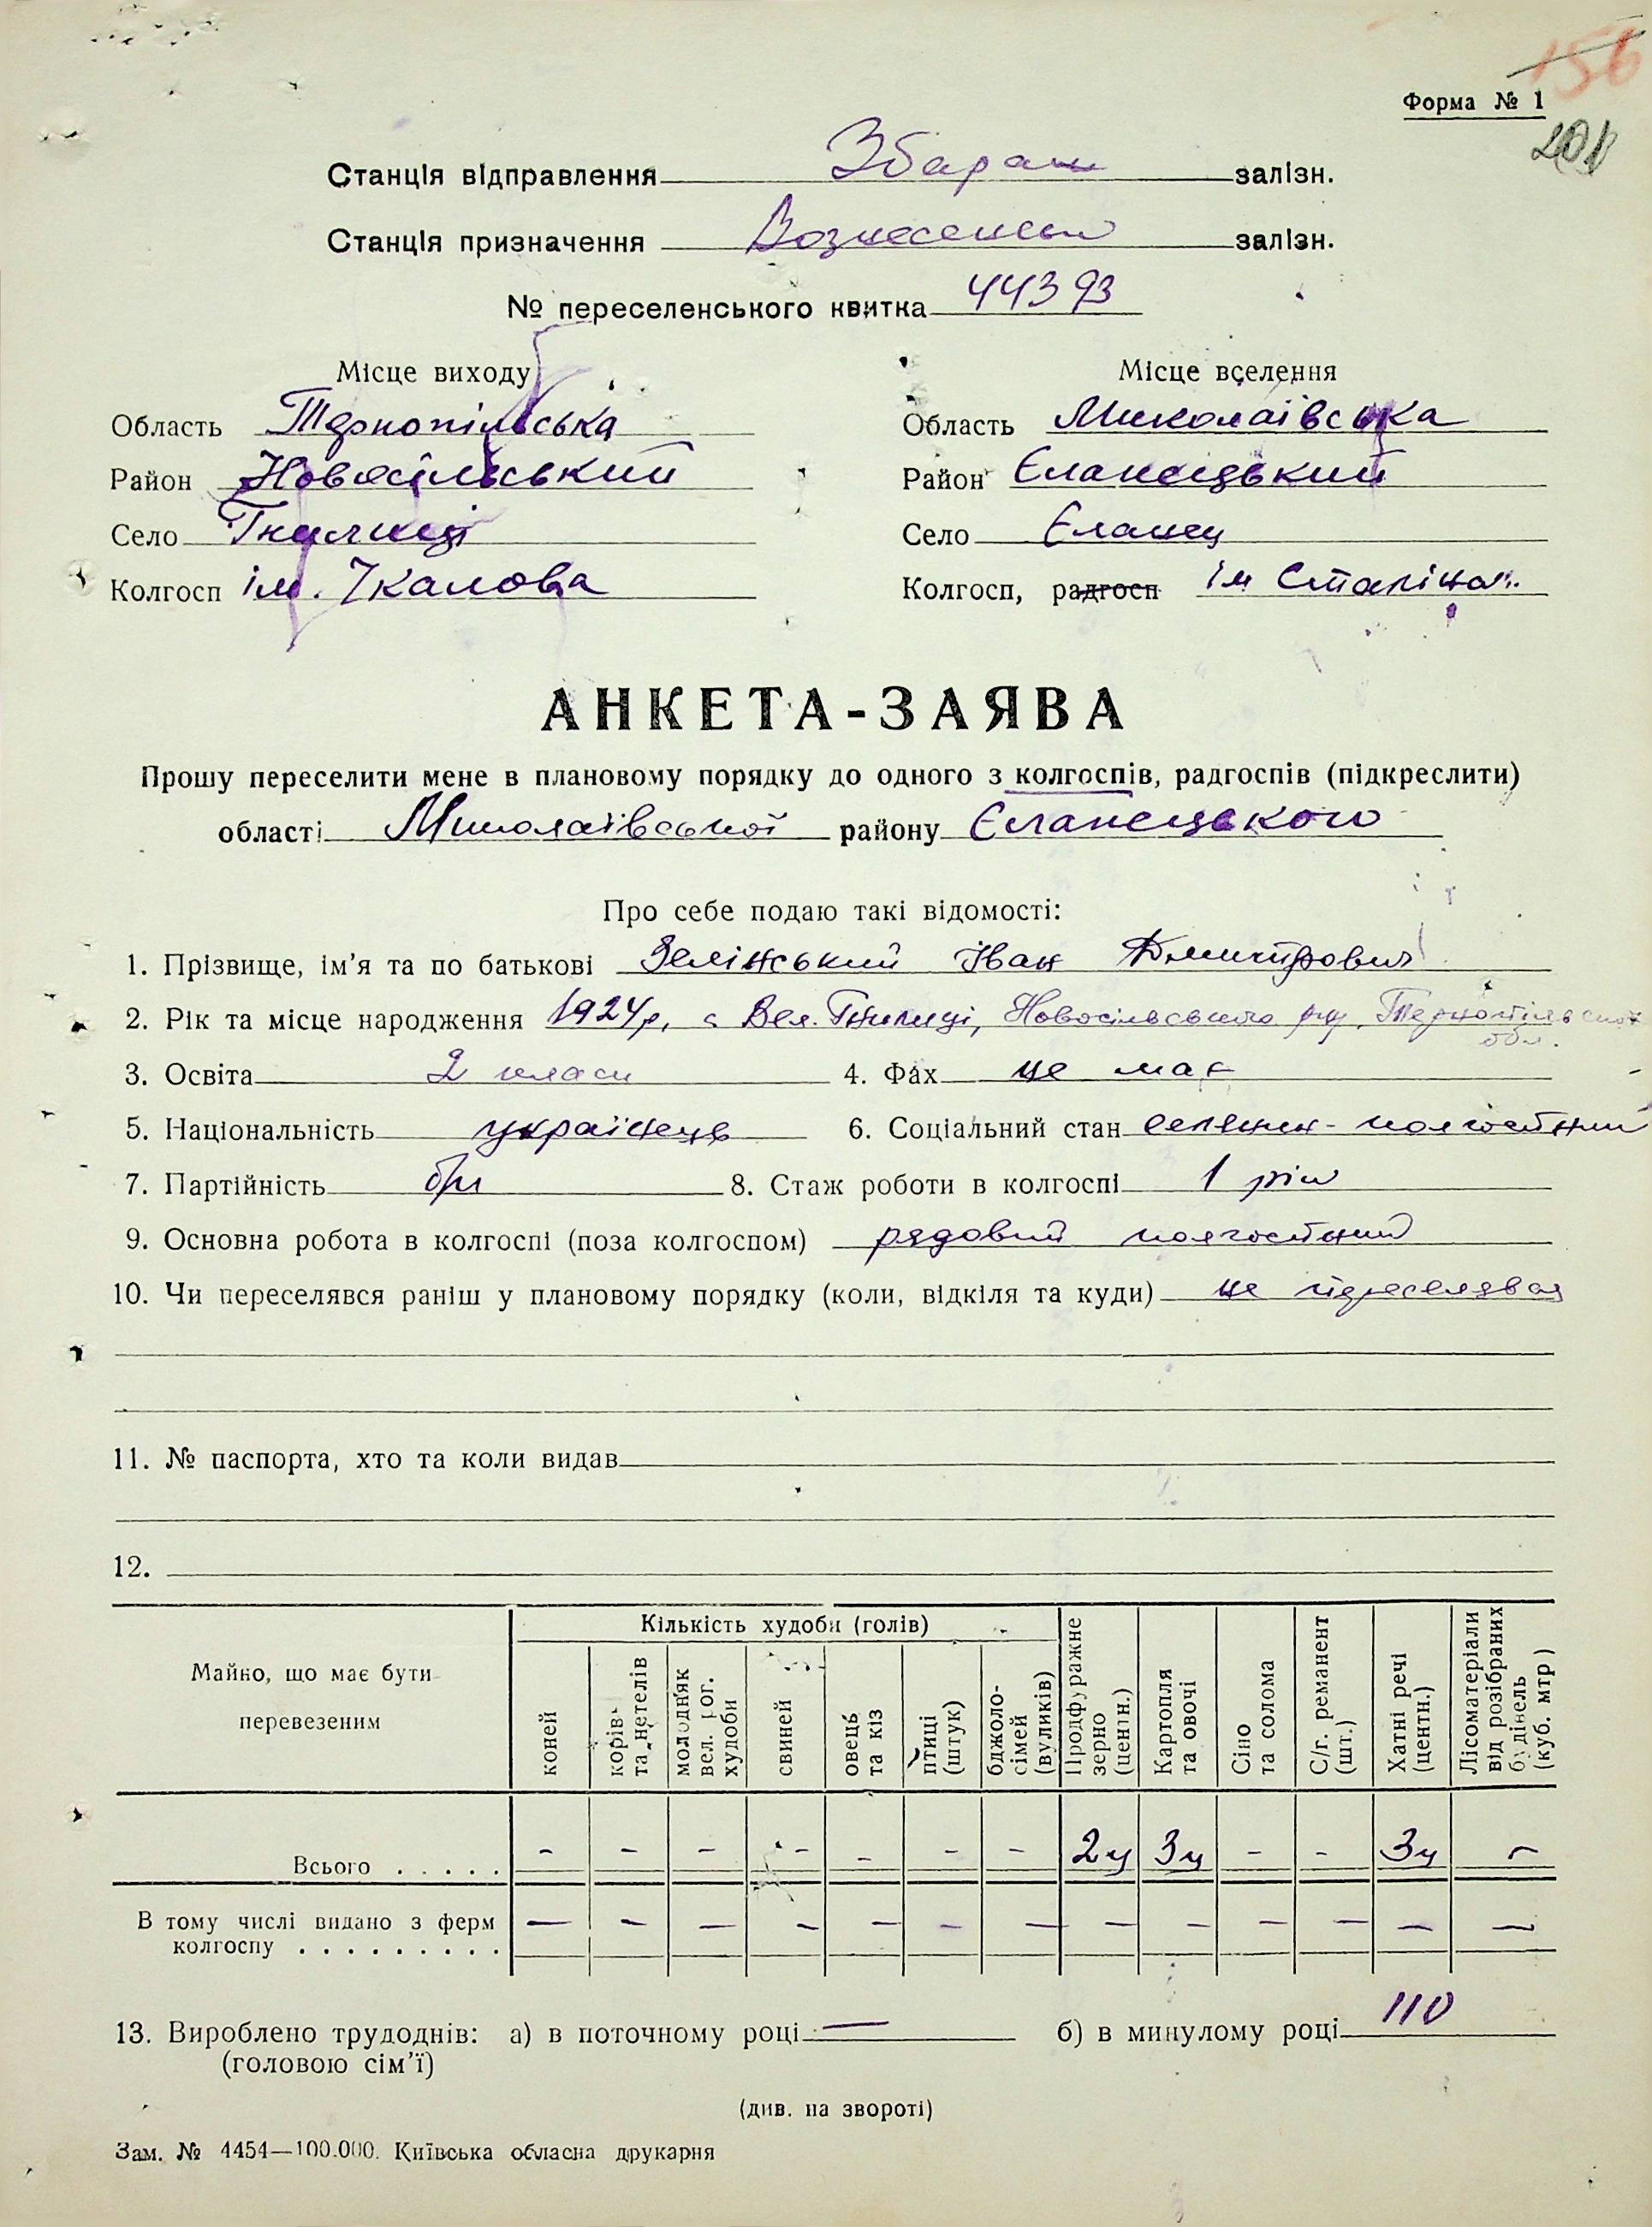 156
Форма № 1
201
Станція відправлення Збараж залізн.
Станція призначення Вознесенськ залізн.
№ переселенського квитка 44393
Місце виходу
Область Тернопільська
Район Новосільський
Село Гнилиці
Колгосп ім. Чкалова
Місце вселення
Область Миколаївська
Район Єланецький
Село Єланец
Колгосп, радгосп ім Сталіна
АНКЕТА-ЗАЯВА
Прошу переселити мене в плановому порядку до одного з колгоспів, радгоспів (підкреслити)
області Миколаївської району Єланецького
Про себе подаю такі відомості:
1. Прізвище, ім'я та по батькові Зелінський Іван Дмитрович
2. Рік та місце народження 1924 р. с Вел. Гнилиці, Новосільського р-ну, Тернопільської обл.
3. Освіта 2 класи 4. Фах не має
5. Національність українець 6. Соціальний стан селянин-колгоспний
7. Партійність б/п 8. Стаж роботи в колгоспі 1 рік
9. Основна робота в колгоспі (поза колгоспом) рядовий колгоспний
10. Чи переселявся раніш у плановому порядку (коли, відкіля та куди) не переселявся
11. № паспорта, хто та коли видав
12.
Майно, що має бути перевезеним
Кількість худоби (голів)
коней
корів та нетелів
молодняк вел. рог. худоби
свиней
овець та кіз
птиці (штук)
бджоло-сімей (вуликів)
Продфуражне зерно (центн.)
Картопля та овочі
Сіно та солома
С/г. реманент (шт.)
Хатні речі (центн.)
Лісоматеріали від розібраних будівель (куб. мтр)
Всього . . . . . – – – – – – – 2ц 3ц – – 3ц –
В тому числі видано з ферм колгоспу . . . . . . . . . – – – – – – – – – – – – –
13. Вироблено трудоднів: а) в поточному році — б) в минулому році 110
(головою сім'ї)
(див. на звороті)
Зам. № 4454—100.000. Київська обласна друкарня